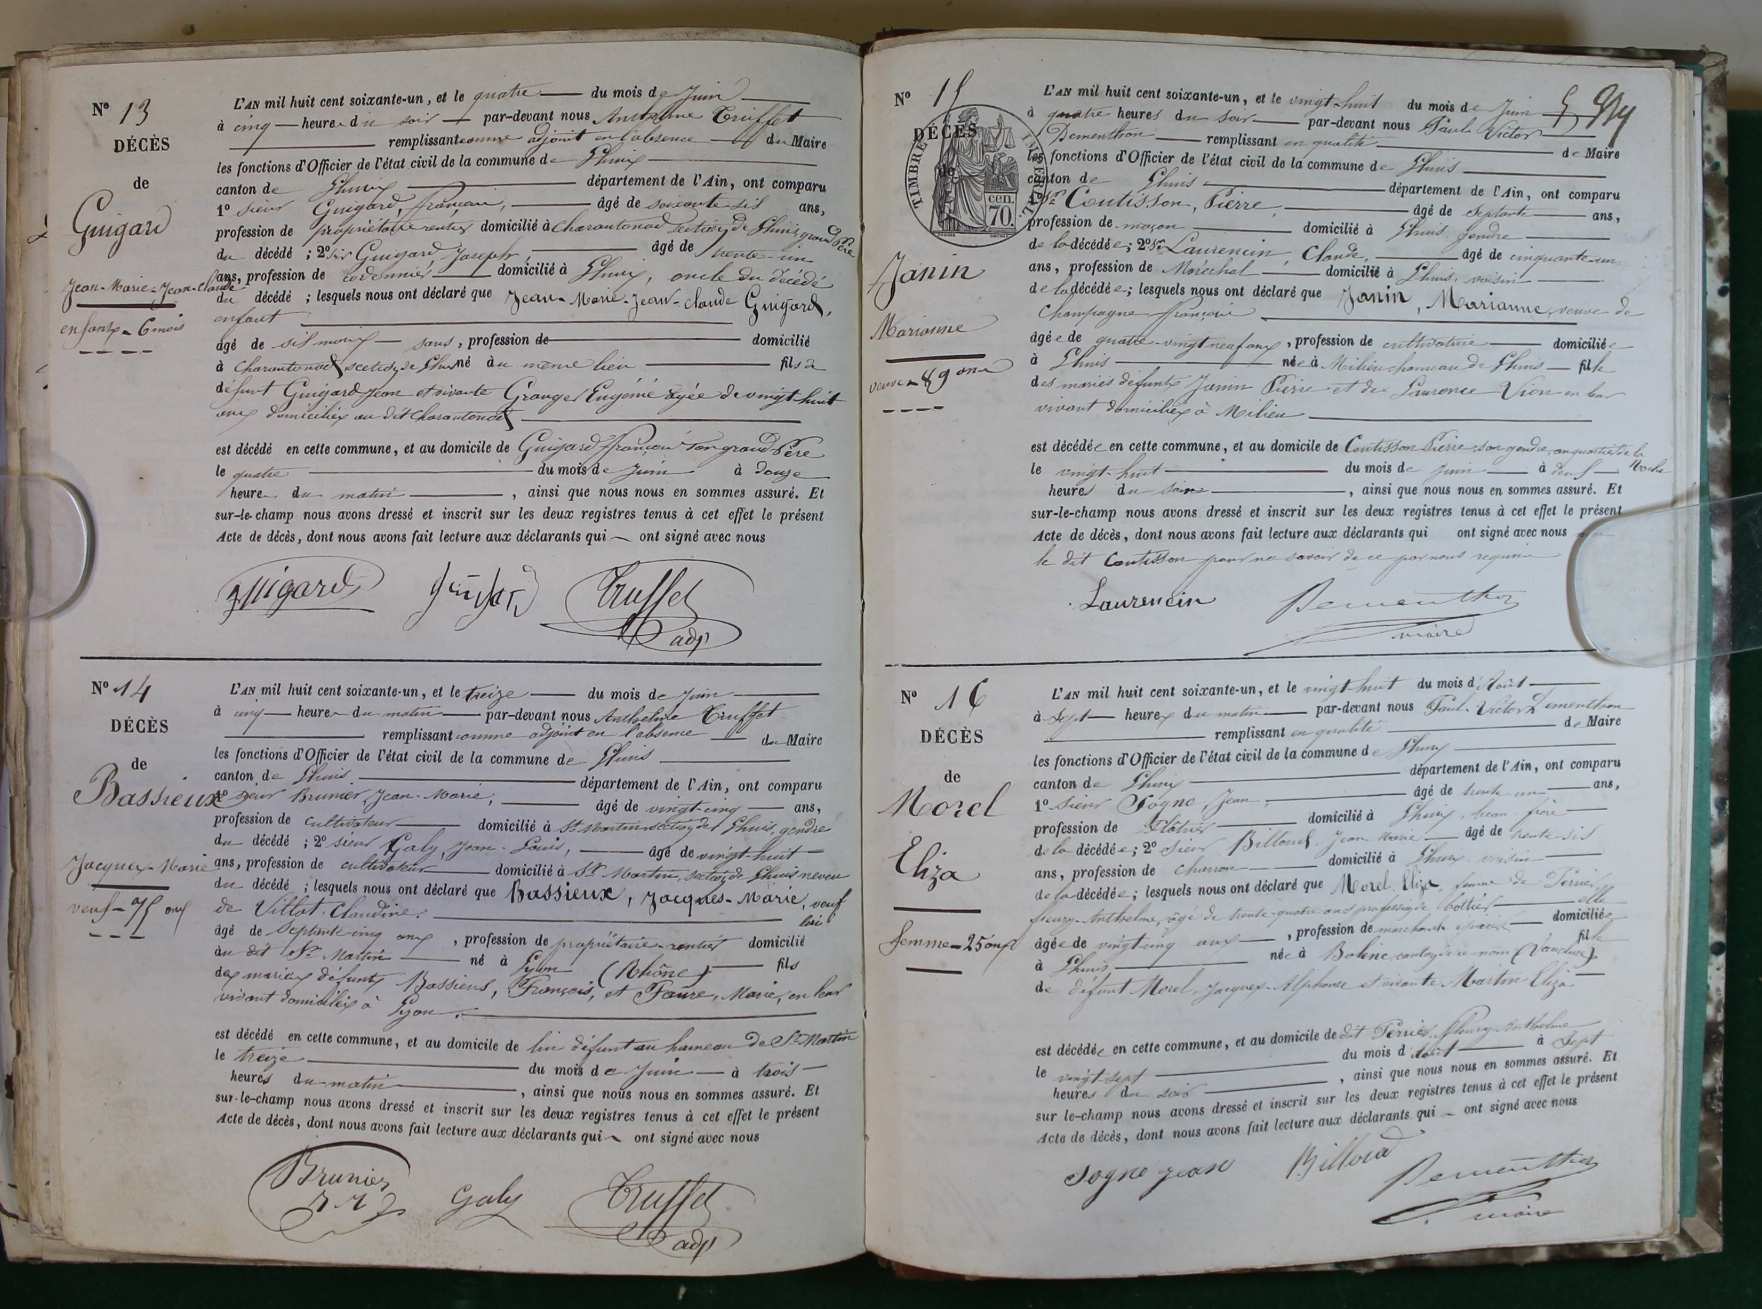 N° 13
DÉCÈS
de
Guigard
Jean-Marie-Jean-Claude
enfant - 6 mois
L'AN mil huit cent soixante-un, et le quatre du mois de Juin
à cinq heure du soir par-devant nous Anthelme Truffet
remplissant comme adjoint en l'absence du Maire
les fonctions d'Officier de l'état civil de la commune de Lhuis
canton de Lhuis département de l'Ain, ont comparu
1° sieur Guigard, françois, âgé de soixante six ans,
profession de propriétaire rentier domicilié à Charantonod section de Lhuis, grand Père
du décédé ; 2° sr Guigard, Joseph, âgé de trente un
ans, profession de cordonnier domicilié à Lhuis, oncle du décédé
du décédé ; lesquels nous ont déclaré que Jean-Marie-Jean-Claude Guigard,
enfant
âgé de six mois sans, profession de domicilié
à Charantonod section de Lhuis né au même lieu fils de
défunt Guigard Jean et vivante Grange Eugénie âgée de vingt-huit
ans domiciliés au dit Charantonod
est décédé en cette commune, et au domicile de Guigard françois son grand Père
le quatre du mois de Juin à douze
heure du matin , ainsi que nous nous en sommes assuré. Et
sur-le-champ nous avons dressé et inscrit sur les deux registres tenus à cet effet le présent
Acte de décès, dont nous avons fait lecture aux déclarants qui ont signé avec nous
guigard guigard Truffet
adjt
N° 14
DÉCÈS
de
Bassieux
Jacques-Marie
veuf - 75 ans
L'AN mil huit cent soixante-un, et le treize du mois de Juin
à cinq heure du matin par-devant nous Anthelme Truffet
remplissant comme adjoint en l'absence du Maire
les fonctions d'Officier de l'état civil de la commune de Lhuis
canton de Lhuis département de l'Ain, ont comparu
1° sieur Brunier Jean-Marie, âgé de vingt-cinq ans,
profession de cultivateur domicilié à St Martin section de Lhuis, gendre
du décédé ; 2° sieur Galy, Jean-Louis, âgé de vingt-huit
ans, profession de cultivateur domicilié à St Martin, section de Lhuis neveu
du décédé ; lesquels nous ont déclaré que Bassieux, Jacques-Marie, veuf
de Villat Claudine,
âgé de septante cinq ans , profession de propriétaire-rentier domicilié
au dit St Martin né à Lyon (Rhône) fils
des mariés défunts Bassieux, François, et Faure, Marie, en leur
vivant domiciliés à Lyon.
est décédé en cette commune, et au domicile de lui défunt au hameau de St Martin
le treize du mois de Juin à trois
heures du matin , ainsi que nous nous en sommes assuré. Et
sur-le-champ nous avons dressé et inscrit sur les deux registres tenus à cet effet le présent
Acte de décès, dont nous avons fait lecture aux déclarants qui ont signé avec nous
Brunier Galy Truffet
adjt
N° 15
DÉCÈS
de
TIMBRE IMPÉRIAL
cen.
70.
Janin
Marianne
veuve - 89 ans
L'AN mil huit cent soixante-un, et le vingt-huit du mois de Juin
à quatre heures du soir par-devant nous Paul Victor
Dementhon remplissant en qualité de Maire
les fonctions d'Officier de l'état civil de la commune de Lhuis
canton de Lhuis département de l'Ain, ont comparu
1° Sr Coutisson, Pierre, âgé de septante ans,
profession de maçon domicilié à Lhuis gendre
de la décédée ; 2° Sr Laurencin, Claude, âgé de cinquante-un
ans, profession de Maréchal domicilié à Lhuis, voisin
de la décédée ; lesquels nous ont déclaré que Janin, Marianne, veuve de
Champagne françois
âgée de quatre-vingt neuf ans , profession de cultivatrice domiciliée
à Lhuis née à Milieu hameau de Lhuis fille
des mariés défunts Janin Pierre et de Laurence Vion en leur
vivant domiciliés à Milieu
est décédée en cette commune, et au domicile de Coutisson Pierre son gendre, au quartier de la
le vingt-huit du mois de Juin à deux
heures du soir , ainsi que nous nous en sommes assuré. Et
sur-le-champ nous avons dressé et inscrit sur les deux registres tenus à cet effet le présent
Acte de décès, dont nous avons fait lecture aux déclarants qui ont signé avec nous
le dit Coutisson pour ne savoir de ce par nous requis
Laurencin Dementhon
maire
N° 16
DÉCÈS
de
Morel
Eliza
femme - 25 ans
L'AN mil huit cent soixante-un, et le vingt huit du mois d'Août
à sept heures du matin par-devant nous Paul-Victor Dementhon
remplissant en qualité de Maire
les fonctions d'Officier de l'état civil de la commune de Lhuis
canton de Lhuis département de l'Ain, ont comparu
1° Sieur Sogne, Jean, âgé de trente un ans,
profession de Plâtrier domicilié à Lhuis, beau frère
de la décédée ; 2° sieur Billoud, Jean Marie âgé de trente-six
ans, profession de charron domicilié à Lhuis voisin
de la décédée ; lesquels nous ont déclaré que Morel, Eliza, femme de Perrier
fleury-Anthelme, âgé de trente-quatre ans profession de bottier elle
âgée de vingt cinq ans , profession de marchande domiciliée
à Lhuis née à Bolène canton de ce nom (Vaucluse) fille
de défunt Morel, Jacques-Alphonse et vivante Martin Eliza
est décédée en cette commune, et au domicile de dit Perrier, fleury-Anthelme
le vingt-sept du mois d'Août à sept
heures du soir , ainsi que nous nous en sommes assuré. Et
sur le-champ nous avons dressé et inscrit sur les deux registres tenus à cet effet le présent
Acte de décès, dont nous avons fait lecture aux déclarants qui ont signé avec nous
Sogne jean Billoud Dementhon
maire